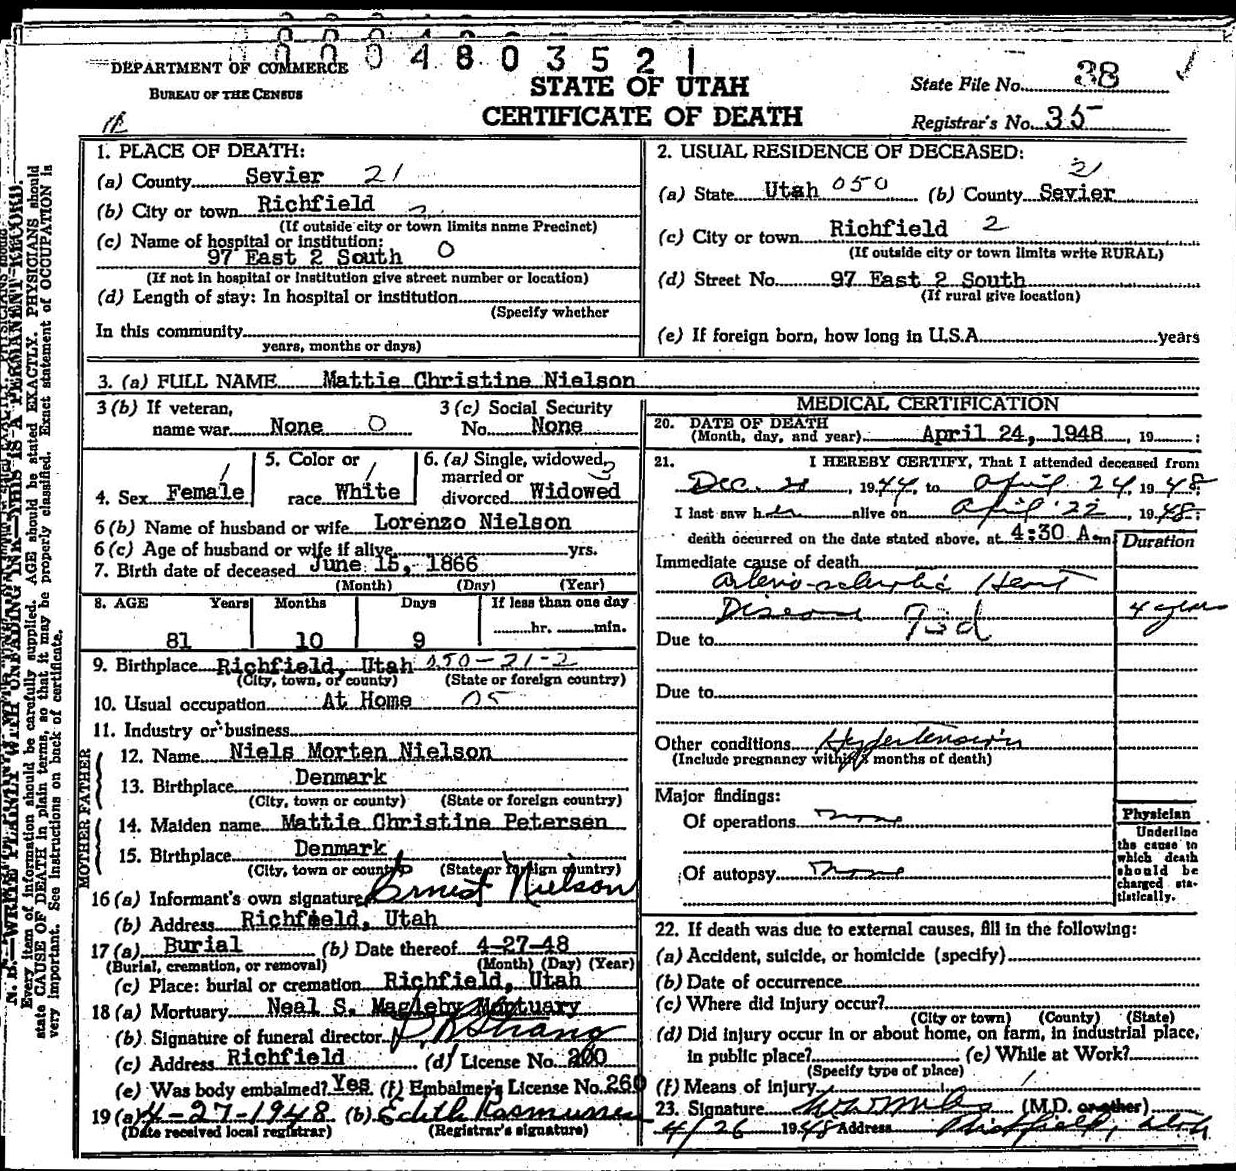 0004803521
DEPARTMENT OF COMMERCE
BUREAU OF THE CENSUS
STATE OF UTAH
CERTIFICATE OF DEATH
State File No. 38
Registrar's No. 35
1. PLACE OF DEATH:
(a) County Sevier 21
(b) City or town Richfield 2
(If outside city or town limits name Precinct)
(c) Name of hospital or institution:
97 East 2 South 0
(If not in hospital or institution give street number or location)
(d) Length of stay: In hospital or institution
(Specify whether
In this community
years, months or days)
2. USUAL RESIDENCE OF DECEASED:
21
(a) State Utah 050 (b) County Sevier
(c) City or town Richfield 2
(If outside city or town limits write RURAL)
(d) Street No. 97 East 2 South
(If rural give location)
(e) If foreign born, how long in U.S.A. years
3. (a) FULL NAME Mattie Christine Nielson
3 (b) If veteran,
name war None 0
3 (c) Social Security
No. None
4. Sex Female 1
5. Color or
race White 1
6. (a) Single, widowed, 3
married or
divorced Widowed
6 (b) Name of husband or wife Lorenzo Nielson
6 (c) Age of husband or wife if alive yrs.
7. Birth date of deceased June 15, 1866
(Month) (Day) (Year)
8. AGE Years Months Days If less than one day
81 10 9 hr. min.
9. Birthplace Richfield, Utah 050-21-2
(City, town, or county) (State or foreign country)
10. Usual occupation At Home 05
11. Industry or business
FATHER
12. Name Niels Morten Nielson
13. Birthplace Denmark
(City, town or county) (State or foreign country)
MOTHER
14. Maiden name Mattie Christine Petersen
15. Birthplace Denmark
(City, town or county) (State or foreign country)
16 (a) Informant's own signature Ernest Nielson
(b) Address Richfield, Utah
17 (a) Burial (b) Date thereof 4-27-48
(Burial, cremation, or removal) (Month) (Day) (Year)
(c) Place: burial or cremation Richfield, Utah
18 (a) Mortuary Neal S. Magleby Mortuary
(b) Signature of funeral director
(c) Address Richfield (d) License No. 200
(e) Was body embalmed? Yes (f) Embalmer's License No. 260
19 (a) 4-27-1948 (b) Edith Rasmussen
(Date received local registrar) (Registrar's signature)
MEDICAL CERTIFICATION
20. DATE OF DEATH
(Month, day, and year) April 24, 1948, 19 ;
21. I HEREBY CERTIFY, That I attended deceased from
Dec. 1944, to April 24, 1948
I last saw her alive on April 22, 1948;
death occurred on the date stated above, at 4:30 A.m
Duration
Immediate cause of death
Arterio-sclerotic Heart
Disease 93d 4 years
Due to
Due to
Other conditions Hypertension
(Include pregnancy within 3 months of death)
Major findings:
Of operations none
Of autopsy none
Physician
Underline
the cause to
which death
should be
charged sta-
tistically.
22. If death was due to external causes, fill in the following:
(a) Accident, suicide, or homicide (specify)
(b) Date of occurrence
(c) Where did injury occur?
(City or town) (County) (State)
(d) Did injury occur in or about home, on farm, in industrial place,
in public place? (e) While at Work?
(Specify type of place)
(f) Means of injury
23. Signature (M.D. or other)
4/26 1948 Address Richfield, Utah
N. B.—WRITE PLAINLY WITH UNFADING INK—THIS IS A PERMANENT RECORD.
Every item of information should be carefully supplied. AGE should be stated EXACTLY. PHYSICIANS should
state CAUSE OF DEATH in plain terms, so that it may be properly classified. Exact statement of OCCUPATION is
very important. See instructions on back of certificate.